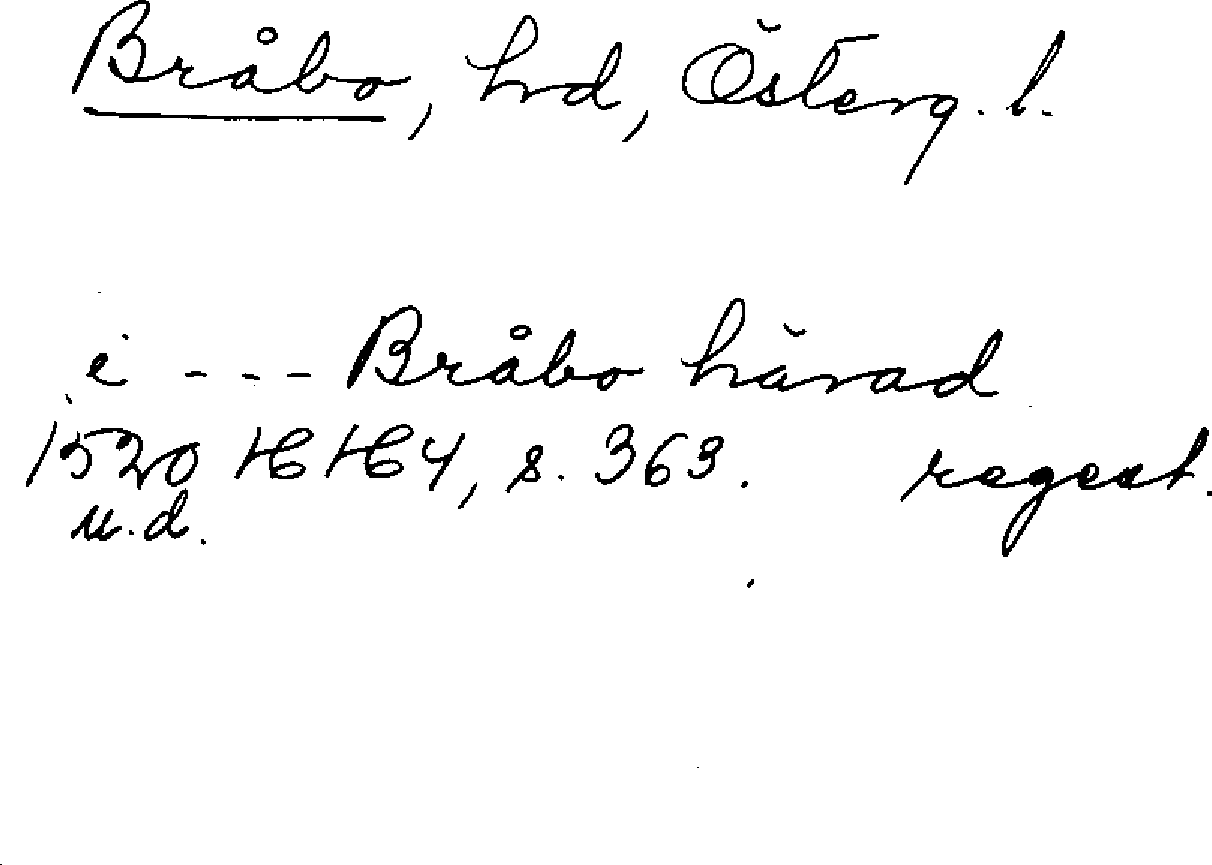 Bråbo, hd, Österg. l.
i - - - Bråbo härad
1520 HH 4, s. 363. regest.
u.d.